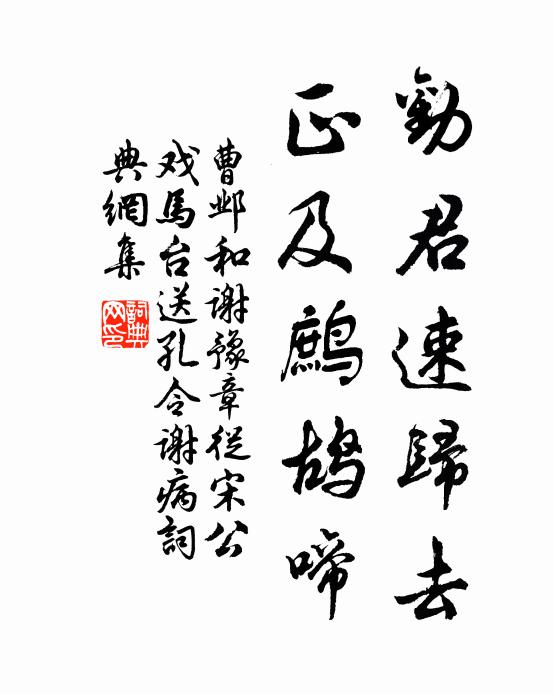 勸君速歸去
正及鷓鴣啼
曹邺和谢豫章從宋公
戏馬台送孔令谢病詞
典網集
詞典
网印